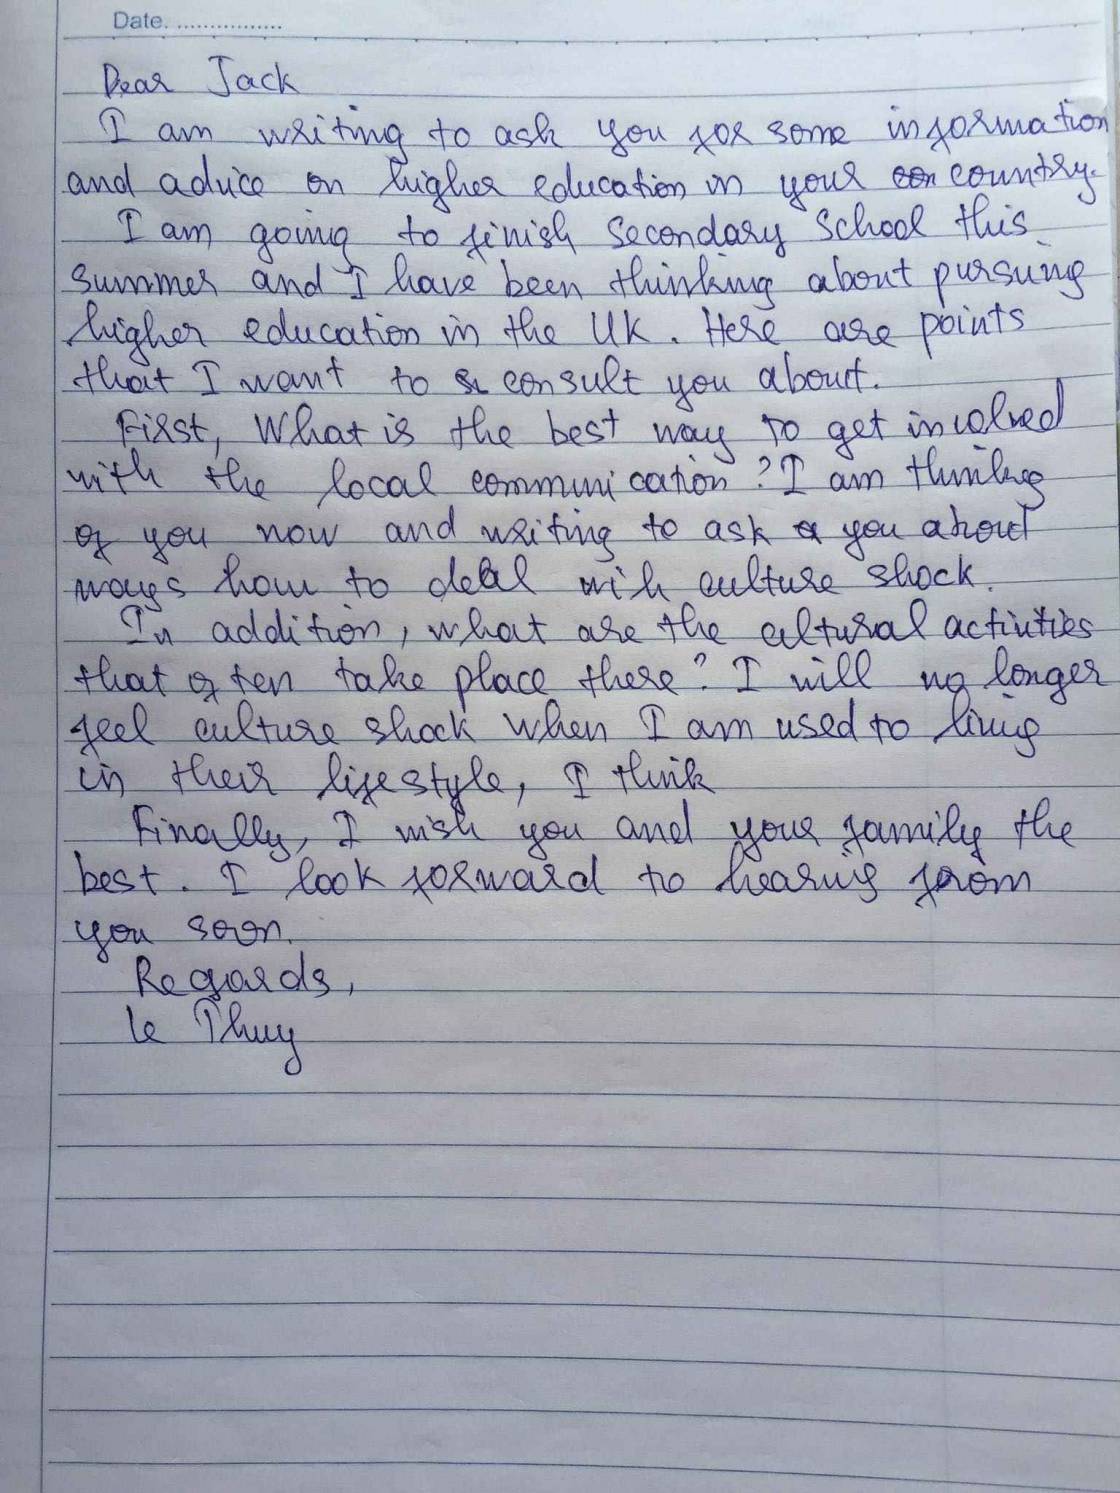 Date. ................
Dear Jack
I am writing to ask you for some information
and advice on higher education in your con country.
I am going to finish Secondary School this
summer and I have been thinking about pursuing
higher education in the UK. Here are points
that I want to s consult you about.
First, What is the best way to get involved
with the local communication? I am thinking
of you now and writing to ask a you about
ways how to deal with culture shock.
In addition, what are the cultural activities
that often take place there? I will no longer
feel culture shock when I am used to living
in their lifestyle, I think
Finally, I wish you and your family the
best. I look forward to hearing from
you soon.
Regards,
Le Thuy